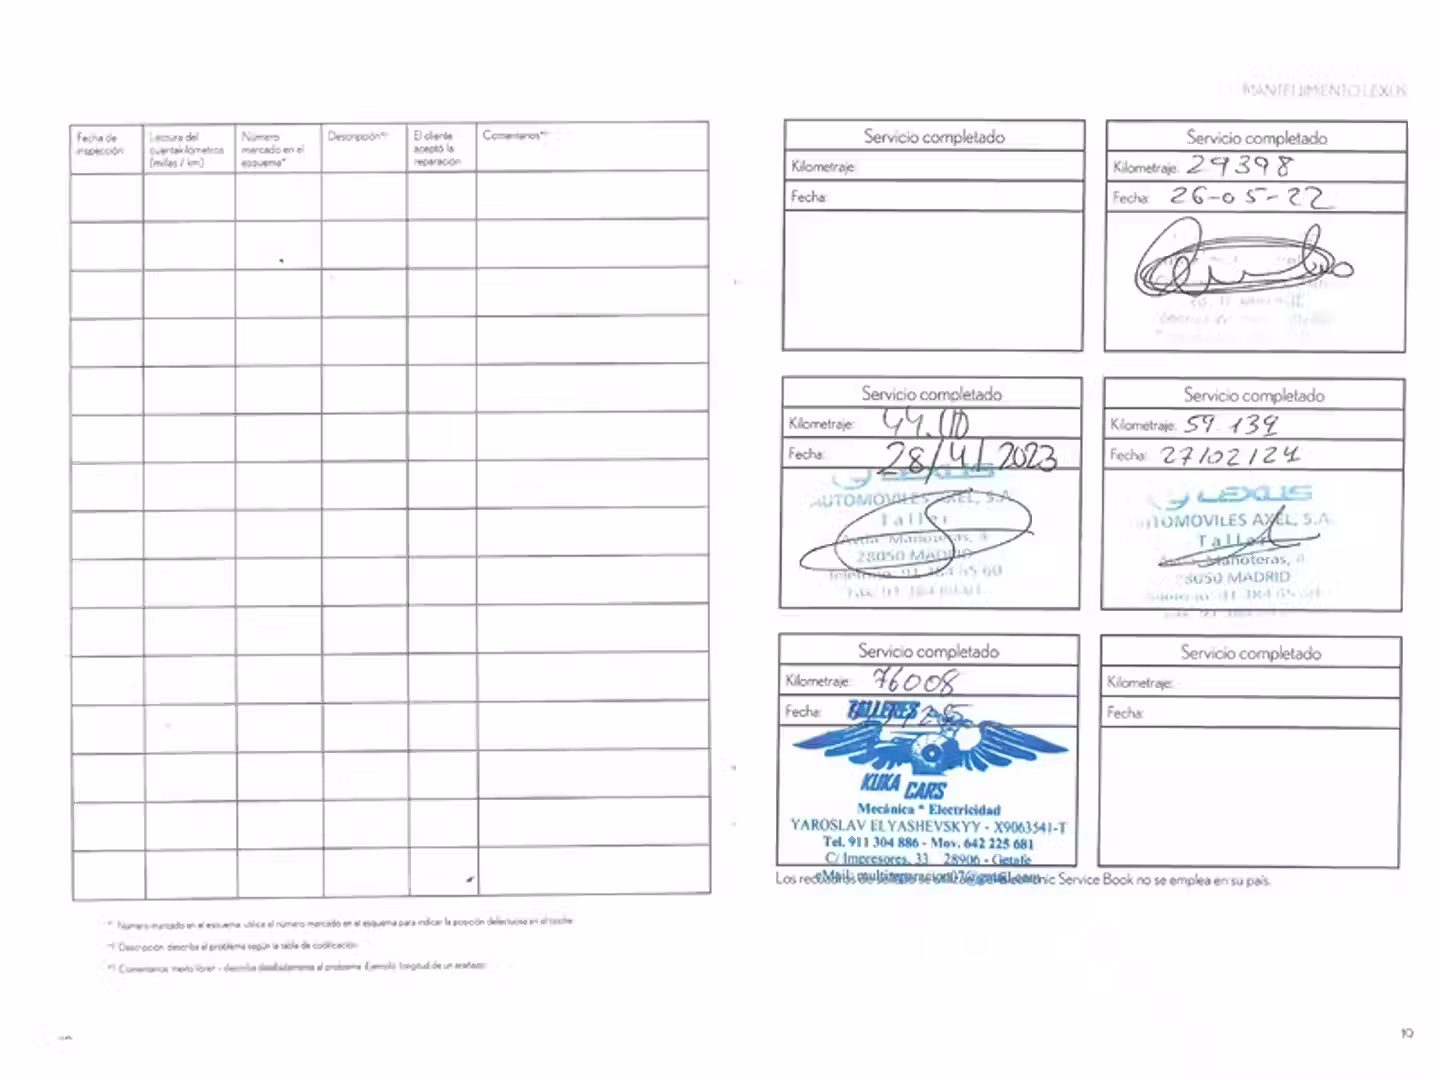 MANTENIMIENTO LEXUS
Fecha de inspección
Lectura del cuentakilómetros (millas / km)
Número marcado en el esquema*¹
Descripción*²
El cliente aceptó la reparación
Comentarios*³
Servicio completado
Kilometraje:
Fecha:
Servicio completado
Kilometraje: 29398
Fecha: 26-05-22
Servicio completado
Kilometraje:
Fecha: 28/4/2023
LEXUS
AUTOMOVILES AXEL, S.A.
Taller
Avda. Manoteras, 4
28050 MADRID
Servicio completado
Kilometraje: 59.139
Fecha: 27/02/24
LEXUS
AUTOMOVILES AXEL, S.A.
Taller
Manoteras, 4
28050 MADRID
Servicio completado
Kilometraje: 76008
Fecha:
TALLERES
KUKA CARS
Mecánica * Electricidad
YAROSLAV ELYASHEVSKYY - X9063541-T
Tel. 911 304 886 - Mov. 642 225 681
C/ Impresores, 33 28906 - Getafe
Servicio completado
Kilometraje:
Fecha:
Service Book no se emplea en su país.
*¹ Número marcado en el esquema: utilice el número marcado en el esquema para indicar la posición defectuosa en el coche
*² Descripción: describa el problema según la tabla de codificación
*³ Comentarios: "texto libre" - describa detalladamente el problema. Ejemplo: longitud de un arañazo
19